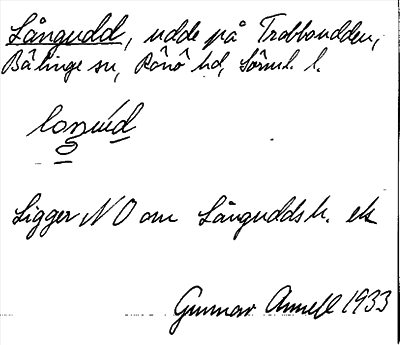 Långudd, udde på Trobboudden,
Bälinge sn, Rönö hd, Sörml. l.
loŋud
Ligger NO om Långuddsh. ek
Gunnar Annell 1933